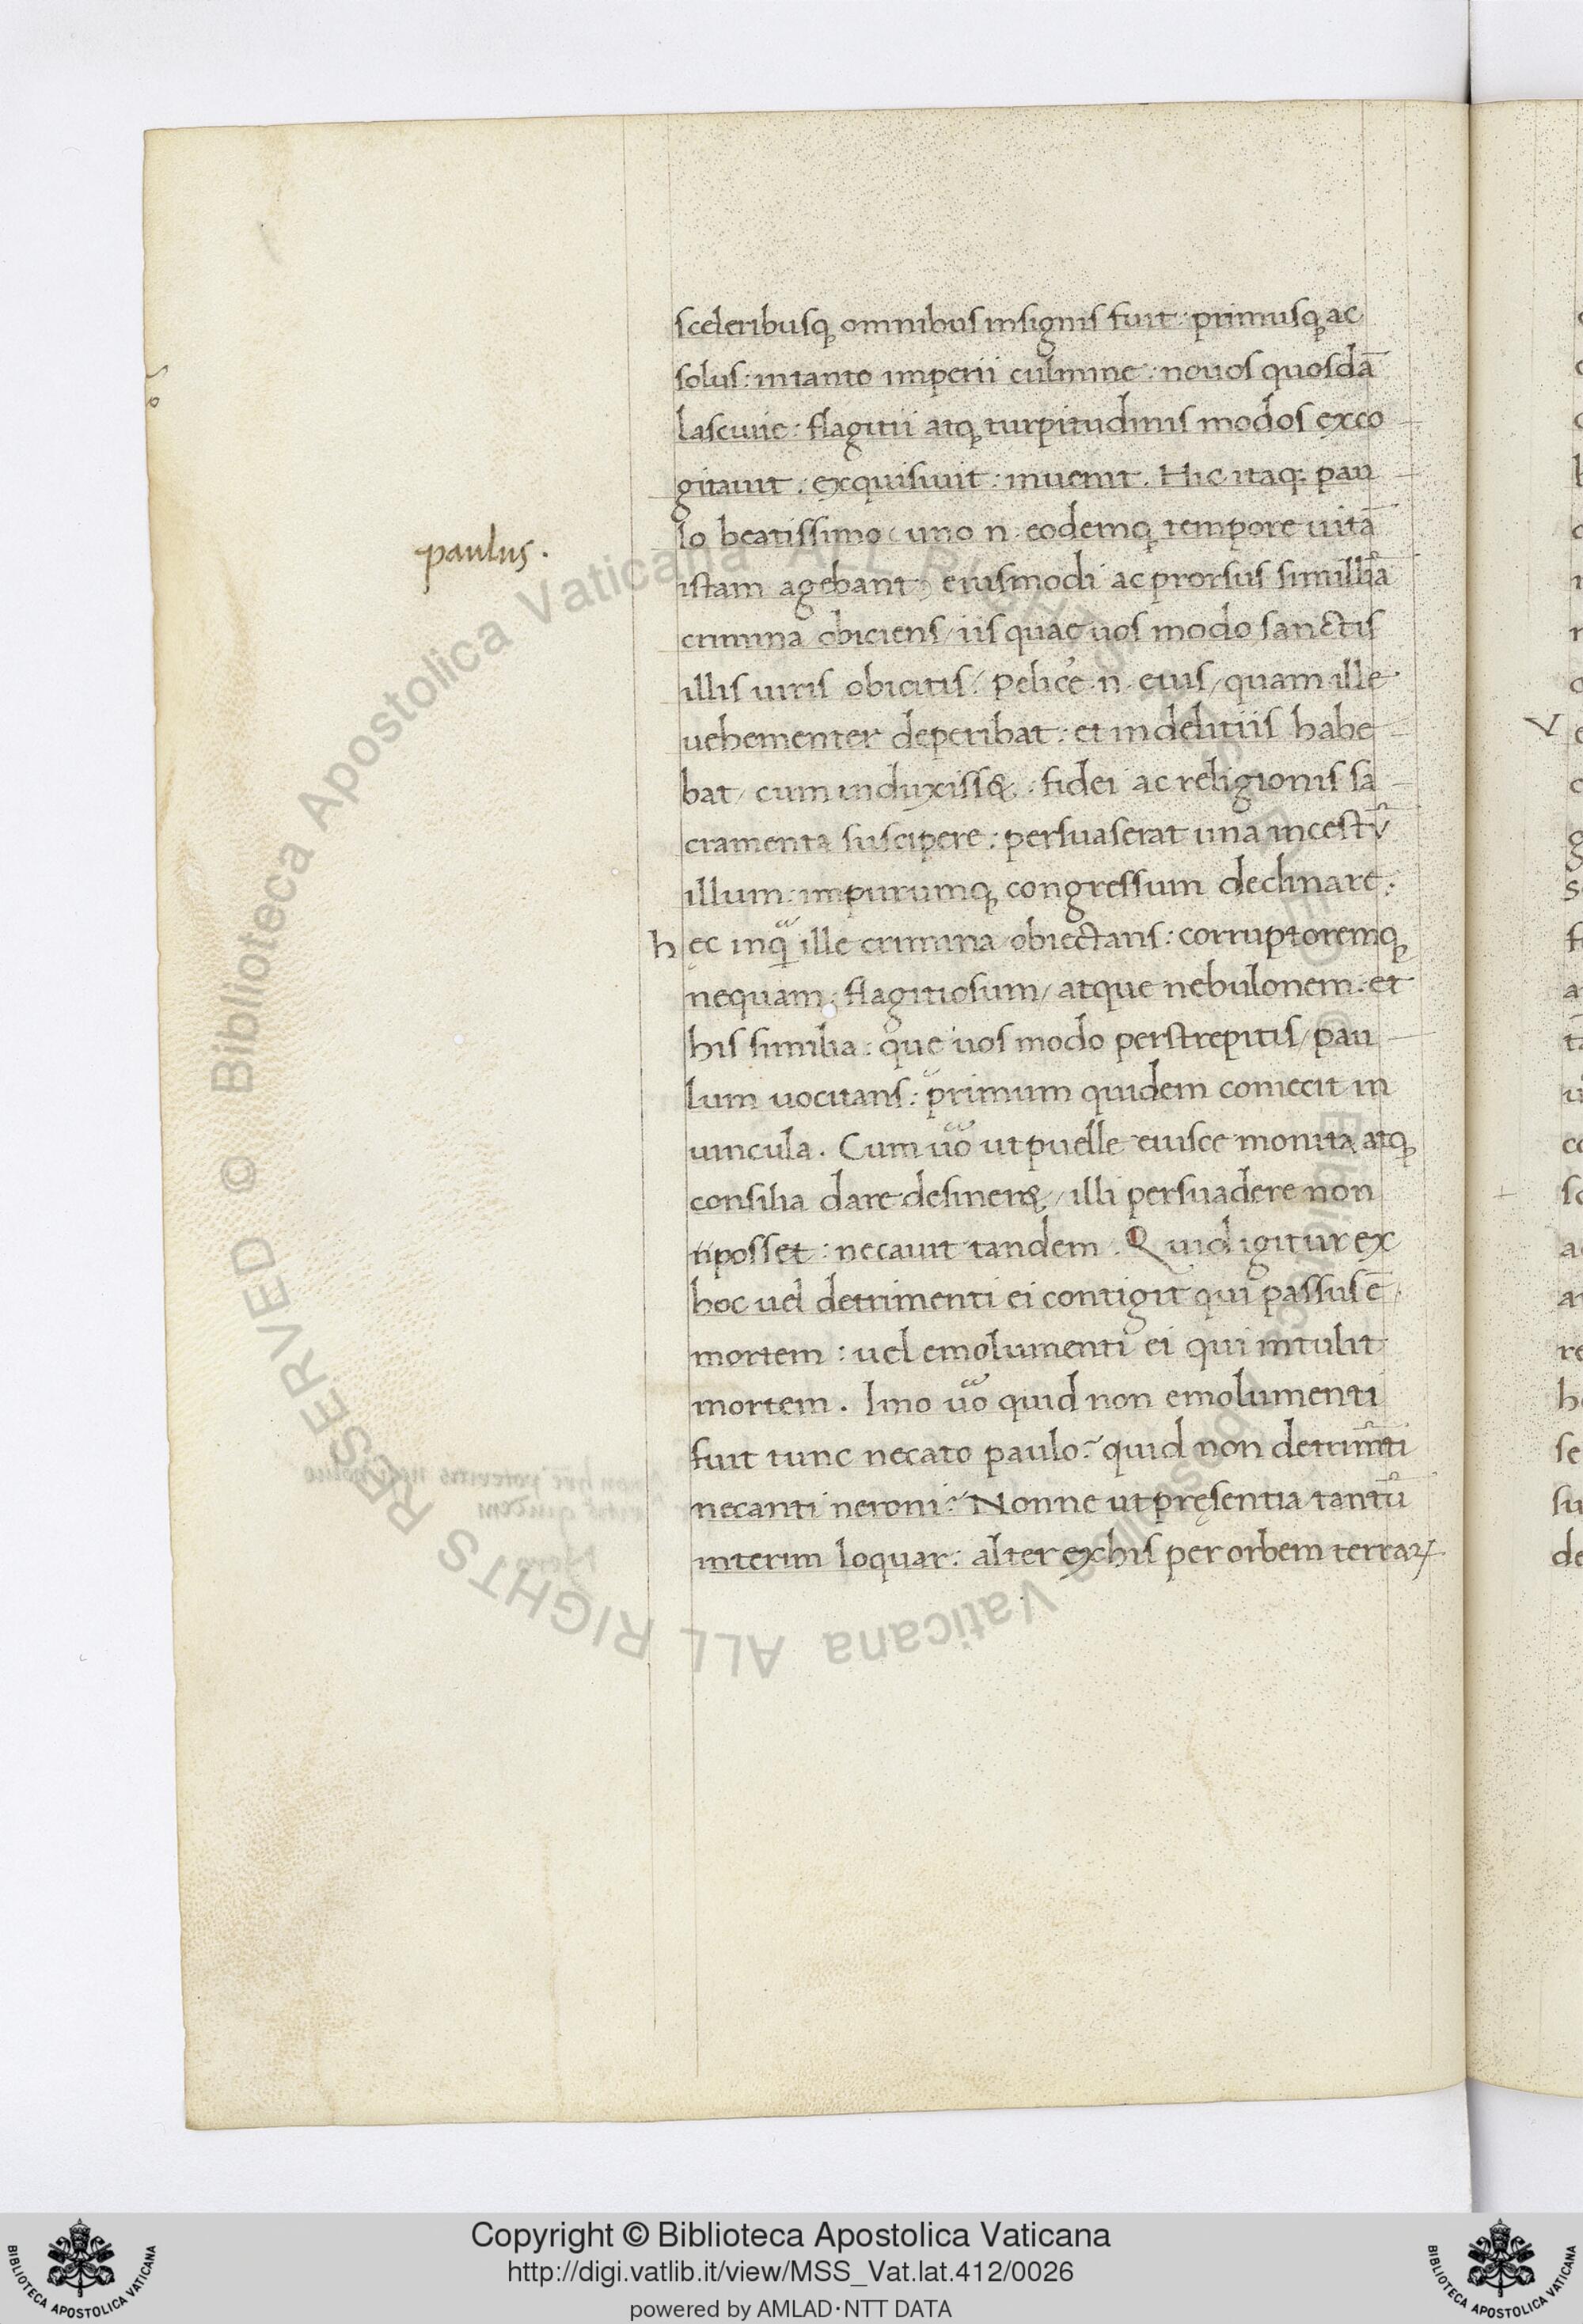 paulus.
sceleribusq; omnibus insignis fuit: primusq; ac
solus: in tanto imperii culmine: nouos quosdā
lasciuie: flagitii atq; turpitudinis modos exco
gitauit: exquisiuit: inuenit. Hic itaq; pau
lo beatissimo (uno n. eodemq; tempore uitā
istam agebant) eiusmodi ac prorsus simillīa
crimina obiciens / iis quae uos modo sanctis
illis uiris obicitis / Pelicē n. eius / quam ille
uehementer deperibat: et in delitiis habe
bat / cum induxiss&: fidei ac religionis sa
cramenta suscipere: persuaserat una incestū
illum: impurumq; congressum declinare:
hęc inquā ille crimina obiectans: corruptoremq;
nequam: flagitiosum / atque nebulonem: et
his similia: que uos modo perstrepitis / pau
lum uocitans: primum quidem coniecit in
uincula. Cum uo ut puelle eiusce monita atq;
consilia dare desiner& / illi persuadere non
posset: necauit tandem. Quid igitur ex
hoc uel detrimenti ei contigit qui passus ē
mortem: uel emolumenti ei qui intulit
mortem. Imo uo quid non emolumenti
fuit tunc necato paulo? quid non detrimti
necanti neroni? Nonne ut pręsentia tantū
interim loquar: alter ex his per orbem terraꝝ
Copyright © Biblioteca Apostolica Vaticana
http://digi.vatlib.it/view/MSS_Vat.lat.412/0026
powered by AMLAD·NTT DATA
BIBLIOTECA APOSTOLICA VATICANA
BIBLIOTECA APOSTOLICA VATICANA
© Biblioteca Apostolica Vaticana ALL RIGHTS RESERVED
© Biblioteca Apostolica Vaticana ALL RIGHTS RESERVED